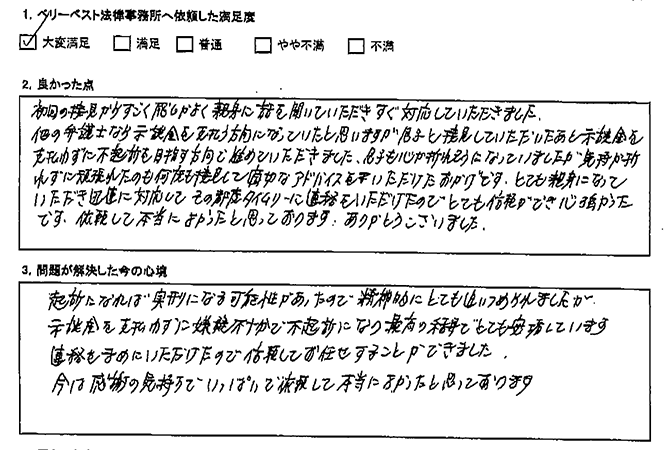 1. ベリーベスト法律事務所へ依頼した満足度
☑ 大変満足 □ 満足 □ 普通 □ やや不満 □ 不満
2. 良かった点
初回の接見からすごく感じがよく親身に話を聞いていただきすぐ対応していただきました。
他の弁護士なら示談金を支払う方向になっていたと思いますが息子と接見していただいたあと示談金を
支払わずに不起訴を目指す方向で進めていただきました。息子も心が折れそうになっていましたが気持が折
れずに頑張れたのも何度も接見して適切なアドバイスを いただけたおかげです。とても親身になって
いただき迅速に対応して その都度タイムリーに連絡をいただけたのでとても信頼ができ心強かった
です。依頼して本当によかったと思っております。ありがとうございました。
3. 問題が解決した今の心境
起訴になれば実刑になる可能性があったので精神的にとても追いつめられましたが
示談金を支払わずに嫌疑不十分で不起訴になり最高の結果でとても安堵しています
連絡をまめにいただけたので信頼してお任せすることができました。
今は感謝の気持ちでいっぱいで依頼して本当によかったと思っております